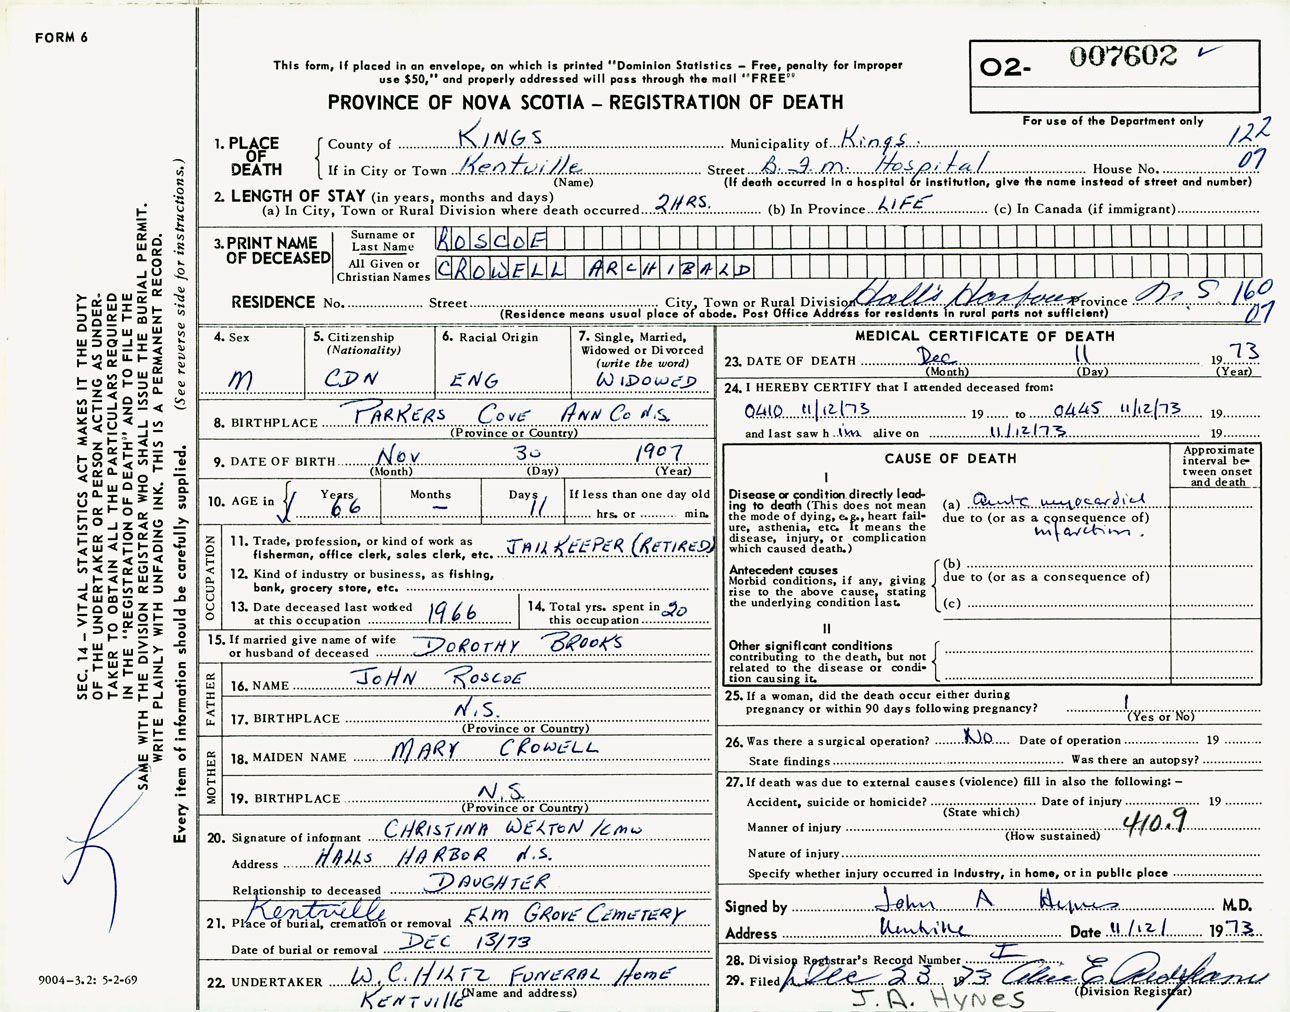 FORM 6
This form, if placed in an envelope, on which is printed "Dominion Statistics – Free, penalty for improper
use $50," and properly addressed will pass through the mail "FREE"
PROVINCE OF NOVA SCOTIA – REGISTRATION OF DEATH
O2- 007602 ✓
For use of the Department only
122
07
1. PLACE OF DEATH
County of KINGS Municipality of Kings
If in City or Town Kentville Street B.F.M. Hospital House No.
(Name) (If death occurred in a hospital or institution, give the name instead of street and number)
2. LENGTH OF STAY (in years, months and days)
(a) In City, Town or Rural Division where death occurred 2HRS. (b) In Province LIFE (c) In Canada (if immigrant)
3. PRINT NAME OF DECEASED
Surname or Last Name ROSCOE
All Given or Christian Names CROWELL ARCHIBALD
RESIDENCE No. Street City, Town or Rural Division Hall's Harbour Province N S 160
07
(Residence means usual place of abode. Post Office Address for residents in rural parts not sufficient)
4. Sex M
5. Citizenship (Nationality) CDN
6. Racial Origin ENG
7. Single, Married, Widowed or Divorced (write the word) WIDOWED
8. BIRTHPLACE PARKERS COVE ANN CO N.S.
(Province or Country)
9. DATE OF BIRTH Nov 30 1907
(Month) (Day) (Year)
10. AGE in Years 66 Months – Days 11 If less than one day old
hrs. or min.
OCCUPATION
11. Trade, profession, or kind of work as
fisherman, office clerk, sales clerk, etc. JAIL KEEPER (RETIRED)
12. Kind of industry or business, as fishing,
bank, grocery store, etc.
13. Date deceased last worked
at this occupation 1966
14. Total yrs. spent in
this occupation 20
15. If married give name of wife
or husband of deceased DOROTHY BROOKS
FATHER
16. NAME JOHN ROSCOE
17. BIRTHPLACE N.S.
(Province or Country)
MOTHER
18. MAIDEN NAME MARY CROWELL
19. BIRTHPLACE N.S.
(Province or Country)
20. Signature of informant CHRISTINA WELTON /cmw
Address HALLS HARBOR N.S.
Relationship to deceased DAUGHTER
Kentville
21. Place of burial, cremation or removal ELM GROVE CEMETERY
Date of burial or removal DEC 13/73
22. UNDERTAKER W.C. HILTZ FUNERAL HOME
KENTVILLE (Name and address)
MEDICAL CERTIFICATE OF DEATH
23. DATE OF DEATH Dec 11 1973
(Month) (Day) (Year)
24. I HEREBY CERTIFY that I attended deceased from:
0410 11/12/73 19 to 0445 11/12/73 19
and last saw him alive on 11/12/73 19
CAUSE OF DEATH
Approximate interval between onset and death
I
Disease or condition directly leading to death (This does not mean
the mode of dying, e.g., heart failure, asthenia, etc. It means the
disease, injury, or complication
which caused death.)
(a) acute myocardial
due to (or as a consequence of)
infarction.
Antecedent causes
Morbid conditions, if any, giving
rise to the above cause, stating
the underlying condition last.
(b)
due to (or as a consequence of)
(c)
II
Other significant conditions
contributing to the death, but not
related to the disease or condition causing it.
25. If a woman, did the death occur either during
pregnancy or within 90 days following pregnancy?
(Yes or No)
26. Was there a surgical operation? No Date of operation 19
State findings Was there an autopsy?
27. If death was due to external causes (violence) fill in also the following: –
Accident, suicide or homicide? Date of injury 19
(State which)
Manner of injury 410.9
(How sustained)
Nature of injury
Specify whether injury occurred in industry, in home, or in public place
Signed by John A Hynes M.D.
Address Kentville Date 11/12/ 1973
28. Division Registrar's Record Number I
29. Filed Dec 23 1973
(Division Registrar)
J.A. HYNES
SEC. 14 – VITAL STATISTICS ACT MAKES IT THE DUTY
OF THE UNDERTAKER OR PERSON ACTING AS UNDER-
TAKER TO OBTAIN ALL THE PARTICULARS REQUIRED
IN THE "REGISTRATION OF DEATH" AND TO FILE THE
SAME WITH THE DIVISION REGISTRAR WHO SHALL ISSUE THE BURIAL PERMIT.
WRITE PLAINLY WITH UNFADING INK. THIS IS A PERMANENT RECORD.
Every item of information should be carefully supplied. (See reverse side for instructions.)
9004-3.2: 5-2-69